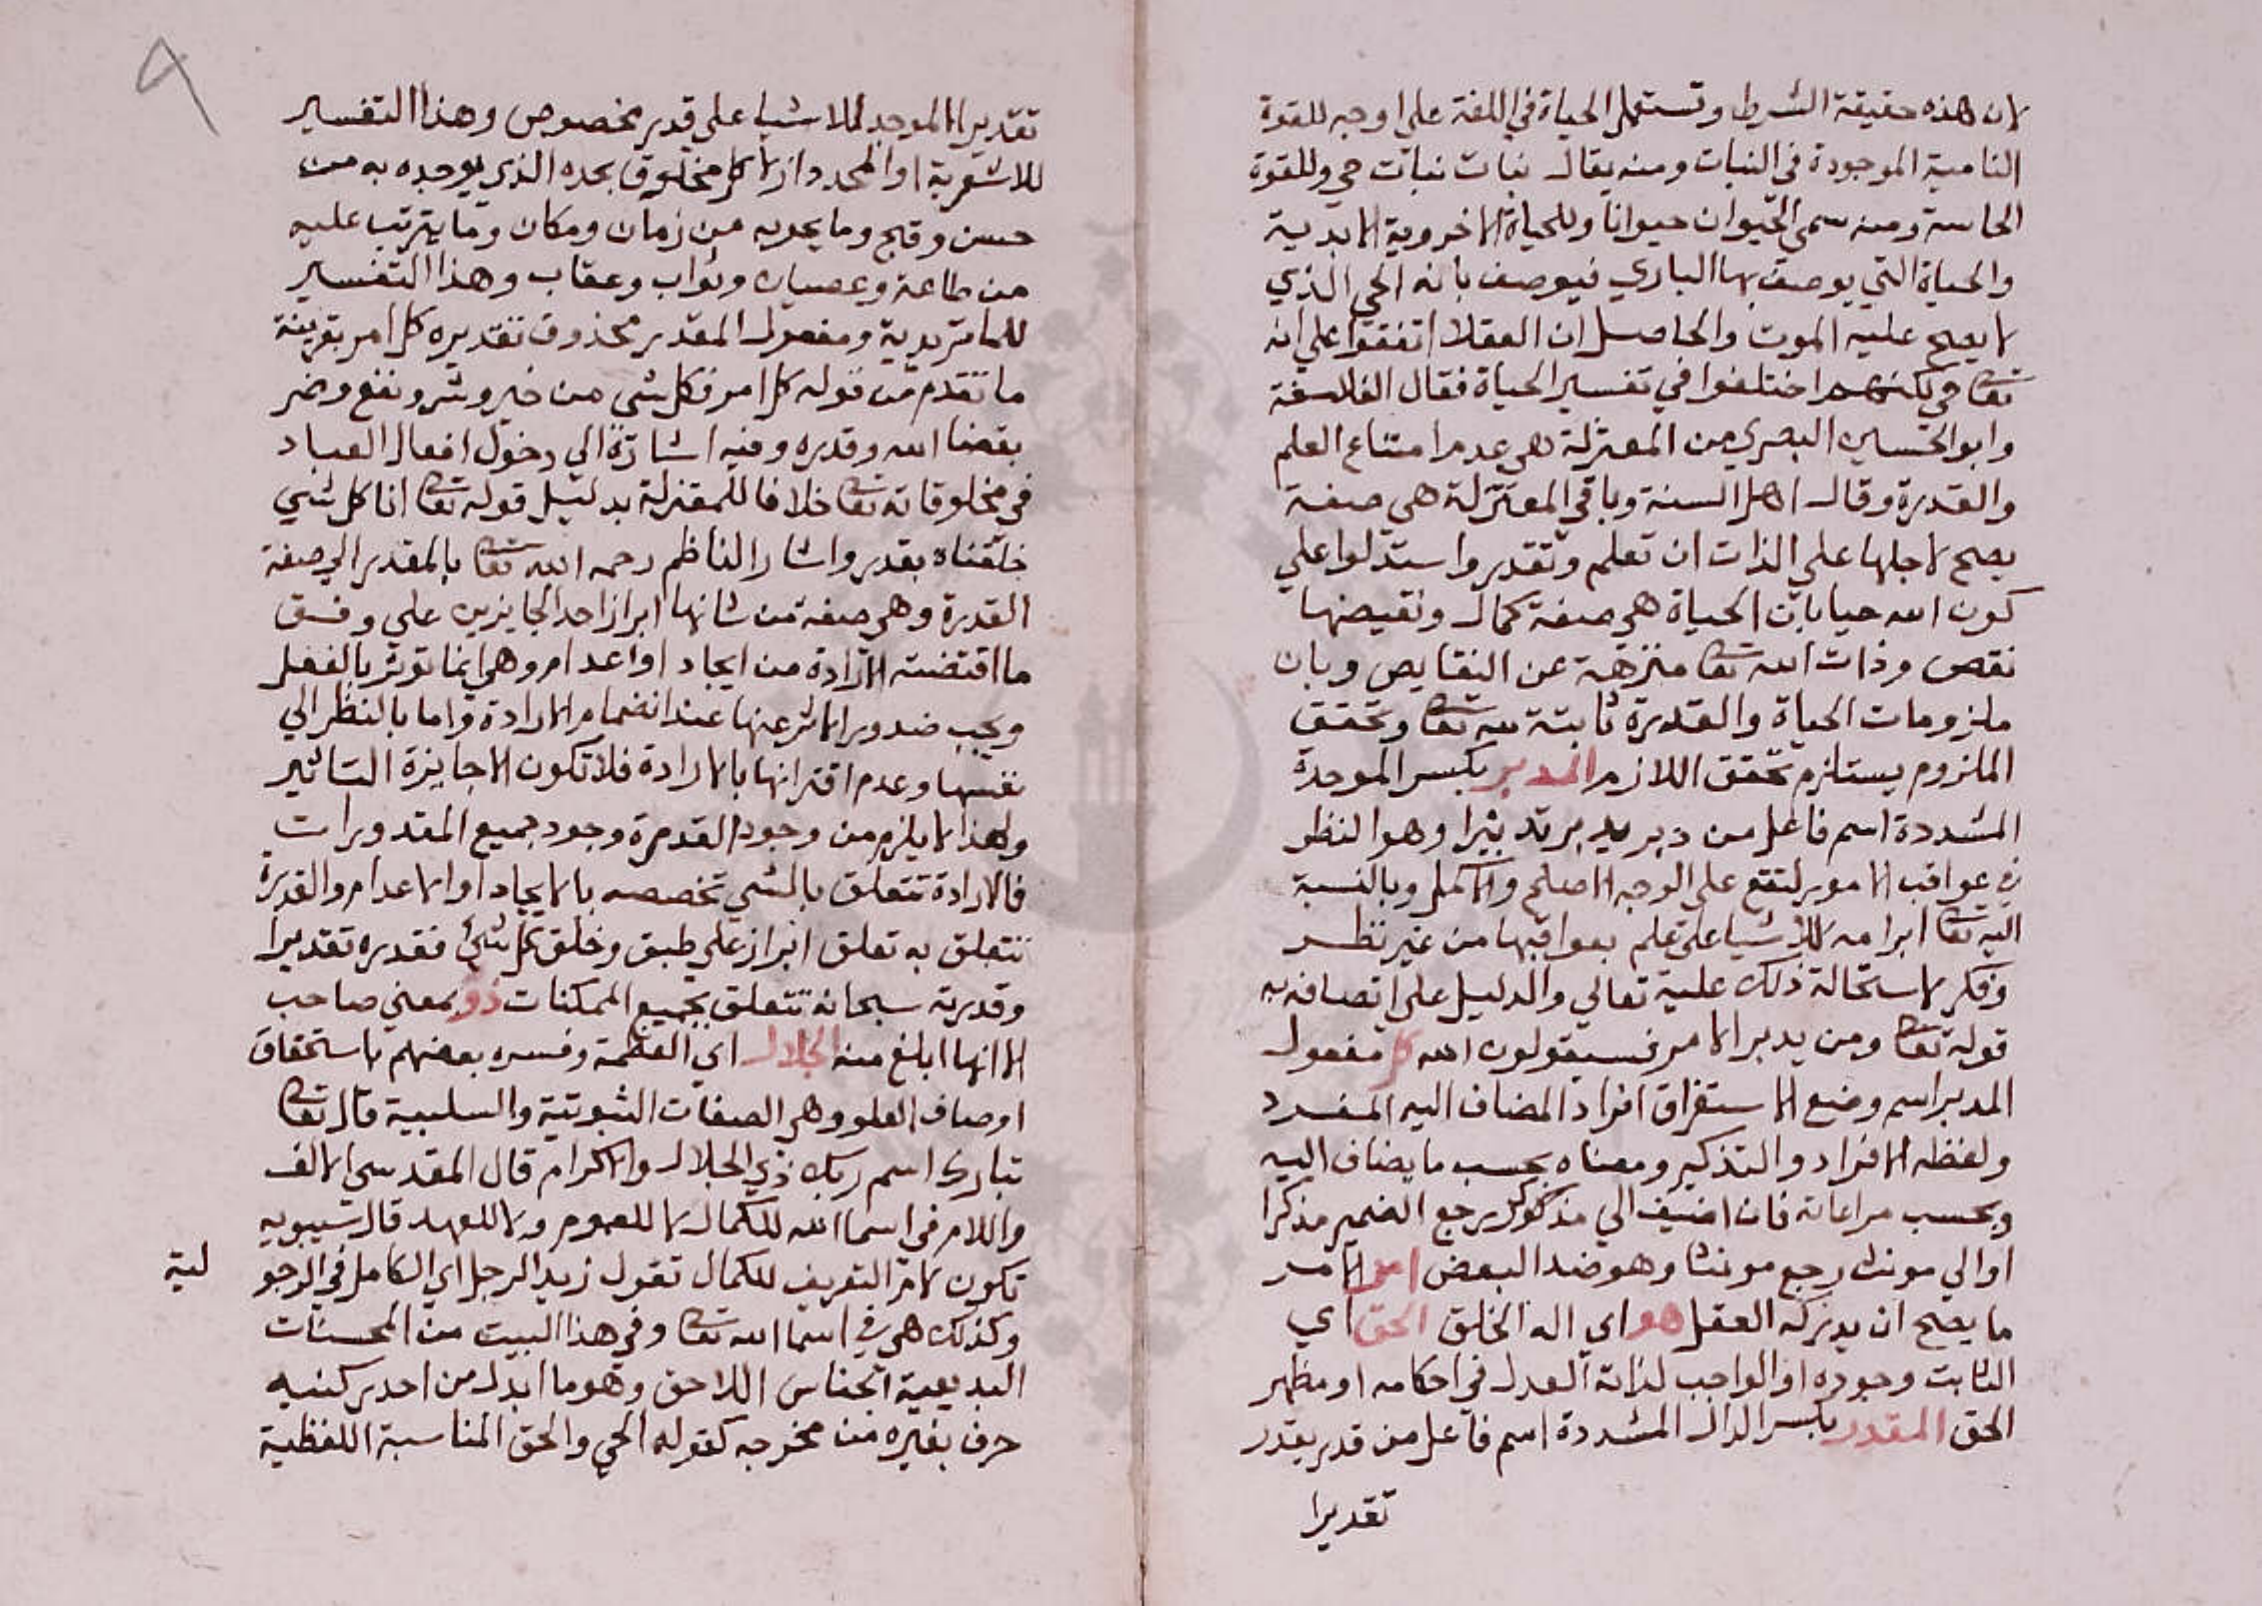 لان هذه حقيقة الشرط وتستعمل الحياة في اللغة علي اوجه للقوة
النامية الموجودة في النبات ومنه يقال نبات نبات حي وللقوة
الحاسة ومنه سمي الحيوان حيوانا وللحياة الاخروية الابدية
والحياة التي يوصف بها الباري فيوصف بانه الحي الذي
لا يصح عليه الموت والحاصل ان العقلا اتفقوا علي انه
تعا حي ولكنهم اختلفوا في تفسير الحياة فقال الفلاسفة
وابو الحسين البصري من المعتزلة هي عدم امتناع العلم
والقدرة وقال اهل السنة وباقي المعتزلة هي صفة
يصح لاجلها علي الذات ان تعلم وتقدر واستدلوا علي
كون الله حيا بان الحياة هي صفة كمال ونقيضها
نقص وذات الله تعا منزهة عن النقايص وبان
ملزومات الحياة والقدرة ثابتة لله تعا وتحقق
الملزوم يستلزم تحقق اللازم المدبر بكسر الموحدة
المشددة اسم فاعل من دبر يدبر تدبيرا وهو النظر
في عواقب الامور لتقع علي الوجه الاصلح والاكمل وبالنسبة
اليه تعا ابرامه للاشيا علي علم بعواقبها من غير نظر
وفكر لاستحالة ذلك عليه تعالي والدليل علي اتصافه به
قوله تعا ومن يدبر الامر فسيقولون الله كل مفعول
المدبر اسم وضع الاستغراق افراد المضاف اليه المفرد
ولفظه الافراد والتذكير ومعناه بحسب ما يضاف اليه
وبحسب مراعاته فان اضيف الي مذكور كر يرجع الضمير مذكرا
او الي مونث رجع مونثا وهو ضد البعض امر الامر
ما يصح ان يدركه العقل هو اي اله الخلق الحق اي
الثابت وجوده او الواجب لذاته العدل في احكامه او مظهر
الحق المقدر بكسر الدال المشددة اسم فاعل من قدر يقدر
تقديرا
٩
تقديرا الموجد للاشيا علي قدر مخصوص وهذا التفسير
للاشعرية او المحدد ازلا كل مخلوق بحده الذي يوجده به من
حسن وقبح وما يحويه من زمان ومكان وما يترتب عليه
من طاعة وعصيان وثواب وعقاب وهذا التفسير
للماتريدية ومفعول المقدر محذوف تقديره كل امر بقرينة
ما تقدم من قوله كل امر فكل شي من خير وشر ونفع وضر
بقضا الله وقدره وفيه اشارة الي دخول افعال العباد
في مخلوقاته تعا خلافا للمعتزلة بدليل قوله تعا انا كل شي
خلقناه بقدر واشار الناظم رحمه الله تعا بالمقدر الي صفة
القدرة وهي صفة من شانها ابراز احد الجايزين علي وفق
ما اقتضته الارادة من ايجاد او اعدام وهي انما توثر بالفعل
ويجب صدور الاثر عنها عند انضمام الارادة واما بالنظر الي
نفسها وعدم اقترانها بالارادة فلا تكون الا جايزة التاثير
ولهذا لا يلزم من وجود القدرة وجود جميع المقدورات
فالارادة تتعلق بالشي تخصصه بالايجاد او الاعدام والقدرة
تتعلق به تعلق ابراز علي طبق وخلق كل شي فقدره تقديرا
وقدرته سبحانه تتعلق بجميع الممكنات ذو بمعني صاحب
الا انها ابلغ منه الجلال اي العظمة وفسره بعضهم باستحقاق
اوصاف العلو وهي الصفات الثبوتية والسلبية قال تعا
تبارك اسم ربك ذي الجلال والاكرام قال المقدسي الالف
واللام في اسما الله للكمال لا للعموم ولا للعهد قال سيبويه
تكون لام التعريف للكمال تقول زيد الرجل اي الكامل في الرجو
لية
وكذلك هي في اسما الله تعا وفي هذا البيت من المحسنات
البديعية الجناس اللاحق وهو ما ابدل من احد ركنيه
حرف بغيره من مخرجه كقوله الحي والحق المناسبة اللفظية